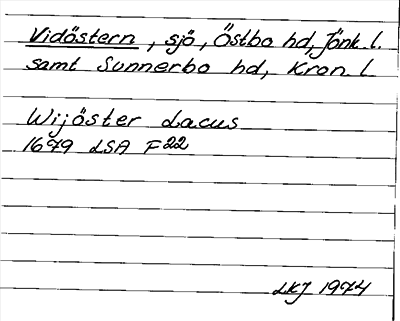 Vidöstern, sjö, Östbo hd, Jönk. l.
samt Sunnerbo hd, Kron. l
Wijöster Lacus
1679 LSA F22
LKJ 1974